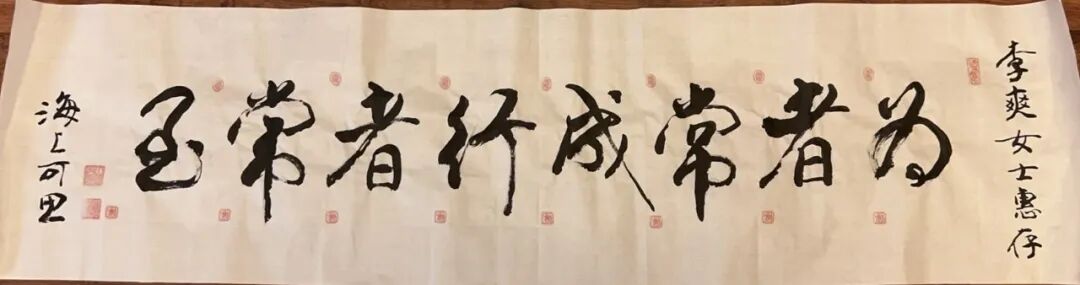 李爽女士惠存
为者常成行者常至
海上可思